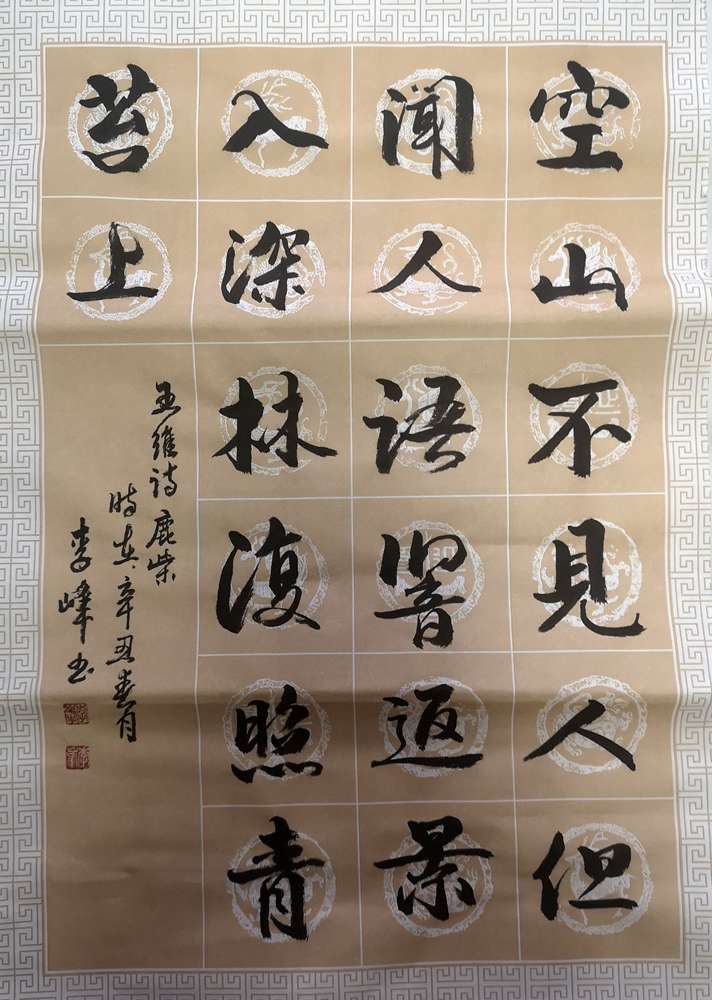 空山不見人但
聞人语响返景
入深林復照青
苔上
王維诗鹿柴
時在辛丑春月
李峰书